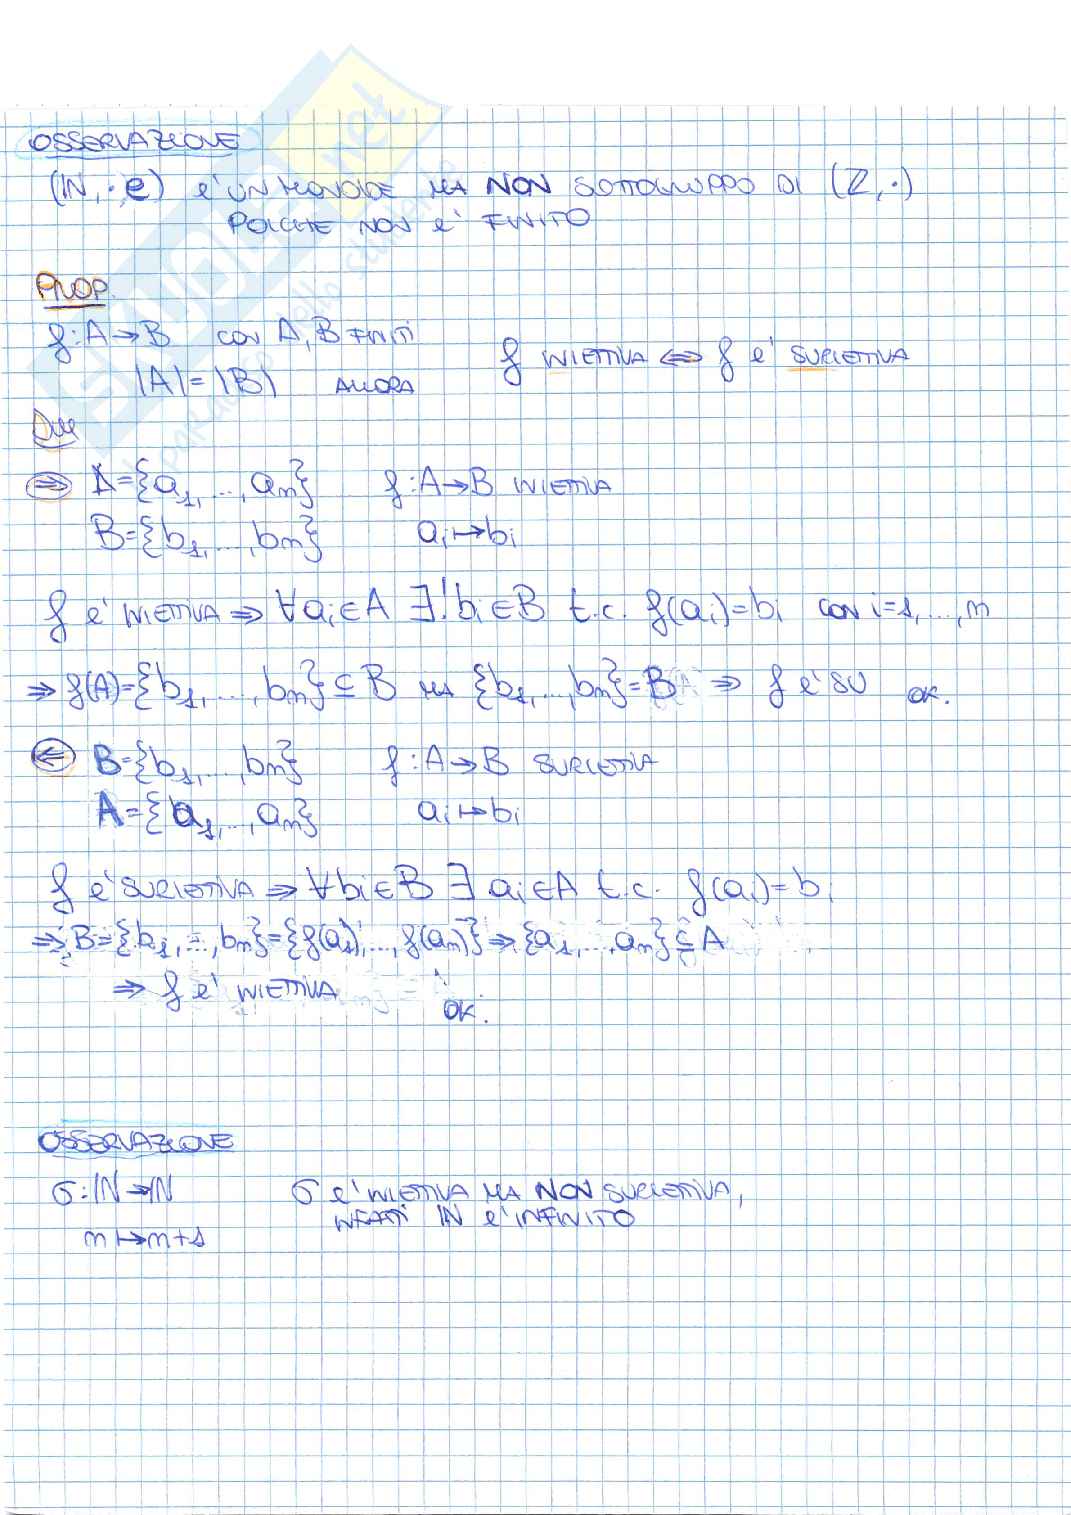 OSSERVAZIONE
(ℕ, ·, e) è UN MONOIDE MA NON SOTTOGRUPPO DI (ℤ, ·)
POICHÈ NON è FINITO
PROP.
f: A → B CON A, B FINITI
|A| = |B| ALLORA
f INIETTIVA ⟺ f è SURIETTIVA
Dim
⇒ A = {a₁, ..., aₙ} f: A → B INIETTIVA
B = {b₁, ..., bₙ} aᵢ ↦ bᵢ
f è INIETTIVA ⇒ ∀aᵢ ∈ A ∃! bᵢ ∈ B t.c. f(aᵢ) = bᵢ CON i = 1, ..., n
⇒ f(A) = {b₁, ..., bₙ} ⊆ B MA {b₁, ..., bₙ} = B ⇒ f è SU OK.
⇐ B = {b₁, ..., bₙ} f: A → B SURIETTIVA
A = {a₁, ..., aₙ} aᵢ ↦ bᵢ
f è SURIETTIVA ⇒ ∀bᵢ ∈ B ∃ aᵢ ∈ A t.c. f(aᵢ) = bᵢ
⇒ B = {b₁, ..., bₙ} = {f(a₁), ..., f(aₙ)} ⇒ {a₁, ..., aₙ} ⊆ A
⇒ f è INIETTIVA
OK.
OSSERVAZIONE
σ: ℕ → ℕ σ è INIETTIVA MA NON SURIETTIVA,
INFATTI ℕ è INFINITO
n ↦ n+1